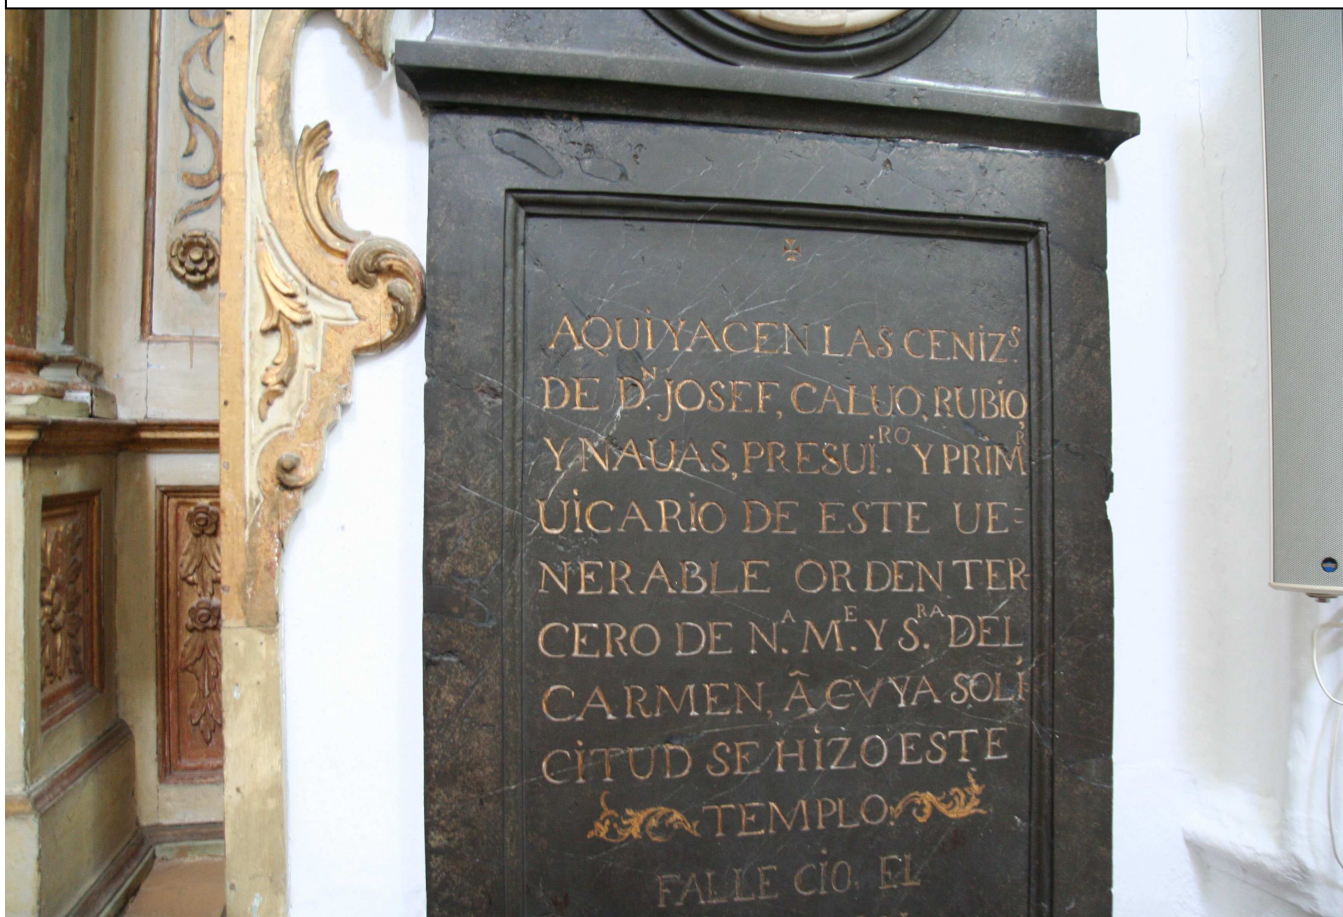 AQUI YACEN LAS CENIZS.
DE DN. JOSEF, CALUO, RUBIO,
Y NAUAS, PRESUI.RO Y PRIMR
UICARIO DE ESTE UE=
NERABLE ORDEN TER-
CERO DE N.A M.E Y S.RA DEL
CARMEN, Â CVYA SOLI
CITUD SE HIZO ESTE
TEMPLO.
FALLECIO. EL